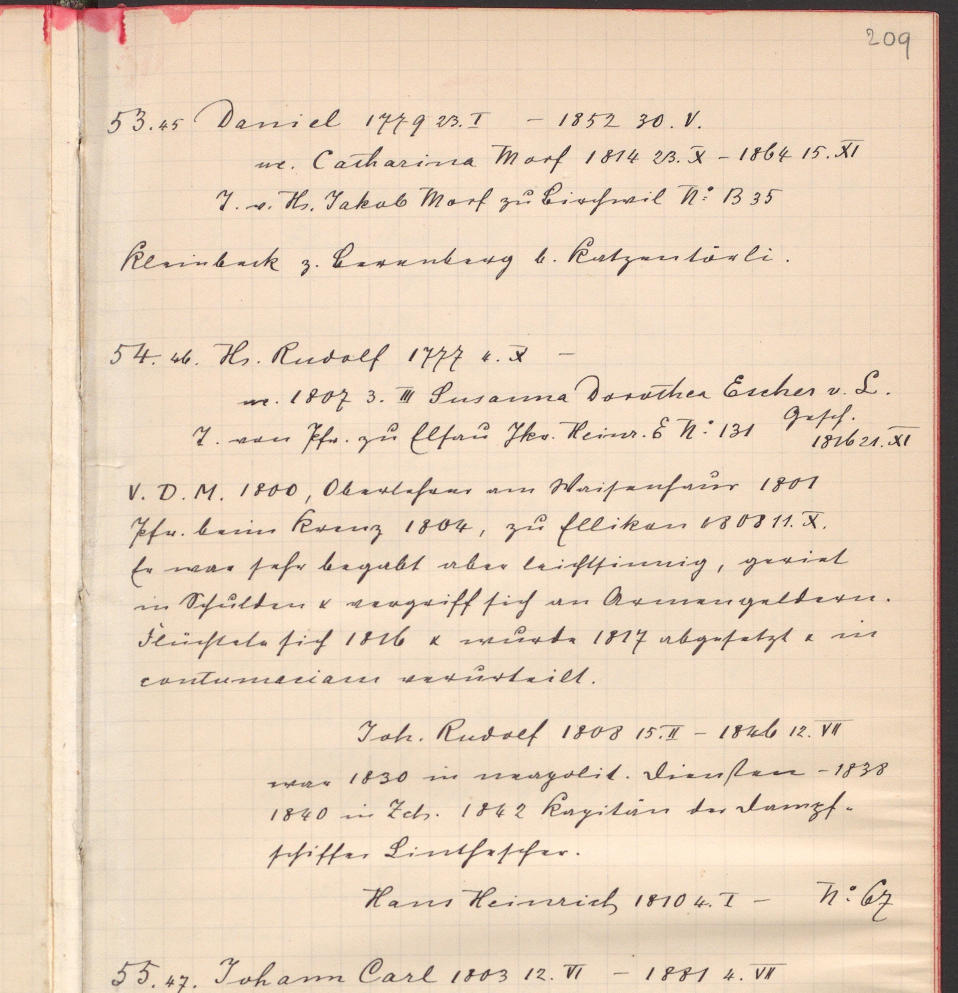 209
53.45 Daniel 1779 23.I – 1852 30.V.
ux. Catharina Morf 1814 23.X – 1864 15.XI
T. v. Hs. Jakob Morf zu Birchwil N: B 35
Kleinbeck z. Berenberg b. Katzentörli.
54.46. Hs. Rudolf 1777 4.X –
ux. 1807 3.III Susanna Dorothea Escher v. L.
Gesch.
T. von Pfr. zu Elsau Jkr. Heinr. E N: 131 1816 21.XI
V. D. M. 1800, Oberlehrer am Waisenhaus 1801
Pfr. beim Kreuz 1804, zu Ellikon 1808 11.X.
Er war sehr begabt aber leichtsinnig, geriet
in Schulden & vergriff sich an Armengeldern.
Flüchtete sich 1816 & wurde 1817 abgesetzt & in
contumaciam verurteilt.
Joh. Rudolf 1808 15.II – 1846 12.VII
war 1830 in neapolit. Diensten – 1838
1840 in Zch. 1842 Kapitän des Dampf-
schiffes Linthescher.
Hans Heinrich 1810 4.I – N: 67
55.47. Johann Carl 1803 12.VI – 1881 4.VII